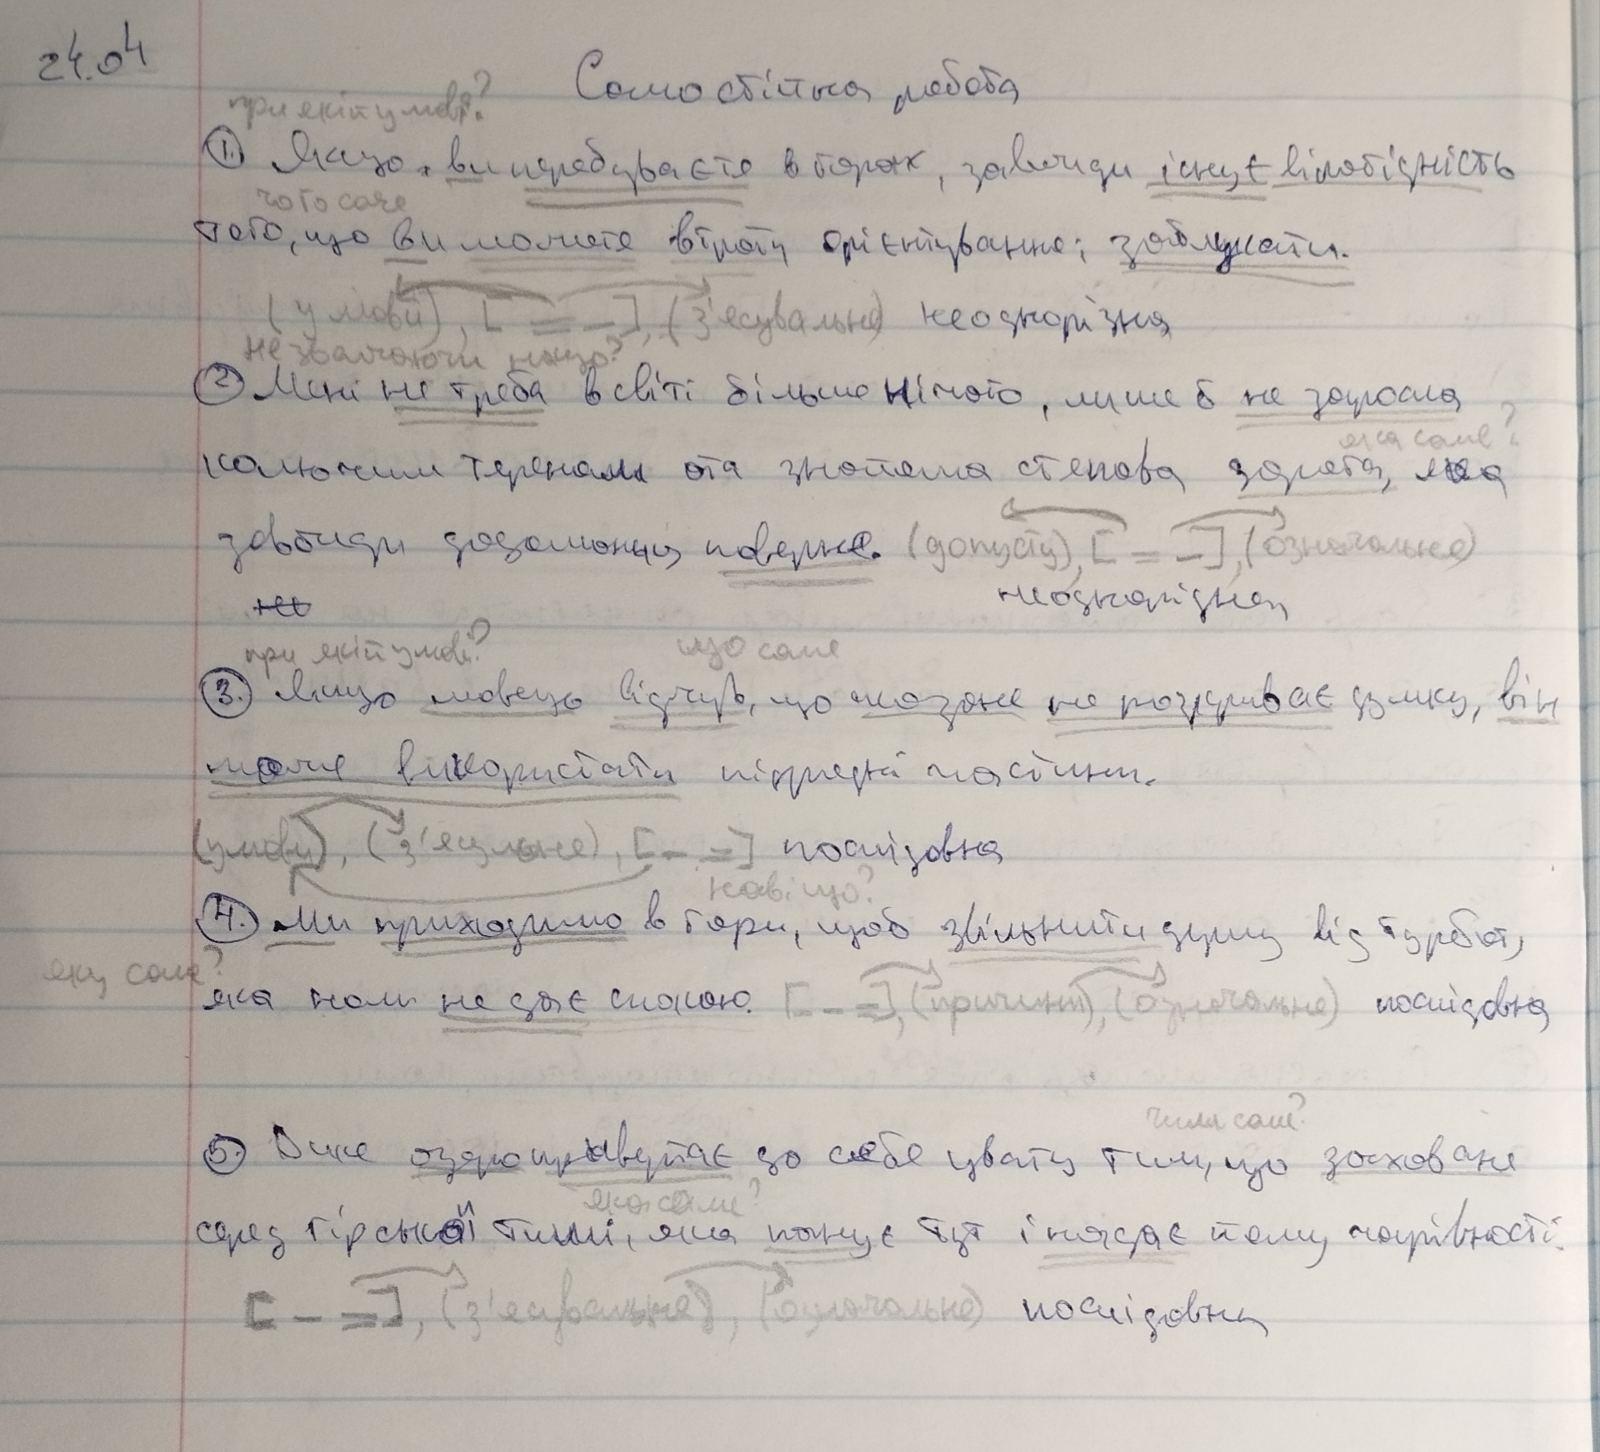 24.04
Самостійна робота
при якій умові?
1. Якщо ви перебуваєте в горах, завжди існує вірогідність
чого саме
того, що ви можете втрату орієнтування і заблукати.
(умови), [= -], (з'ясувальне) неоднорідна
не зважаючи на що?
2. Мені не треба в світі більше нічого, лише б не заросла
яка саме?
колючим тереном ота знайома степова дорога, яка
завжди додомоньку поверне. (допусту), [= -], (означальне)
неоднорідна
не
при якій умові? що саме
3. Якщо мовець відчув, що сказане не розкриває думку, він
може використати підрядні частини.
(умови), (з'ясувальне), [- =] послідовна
навіщо?
4. Ми приходимо в гори, щоб звільнити душу від турбот,
яку саме?
яка нам не дає спокою. [- =], (причини), (означальне) послідовна
чим саме?
5. Дике озеро привертає до себе увагу тим, що заховане
яка саме?
серед гірської тиші, яка панує тут і надає йому чарівності.
[- =], (з'ясувальне), (означальне) послідовна